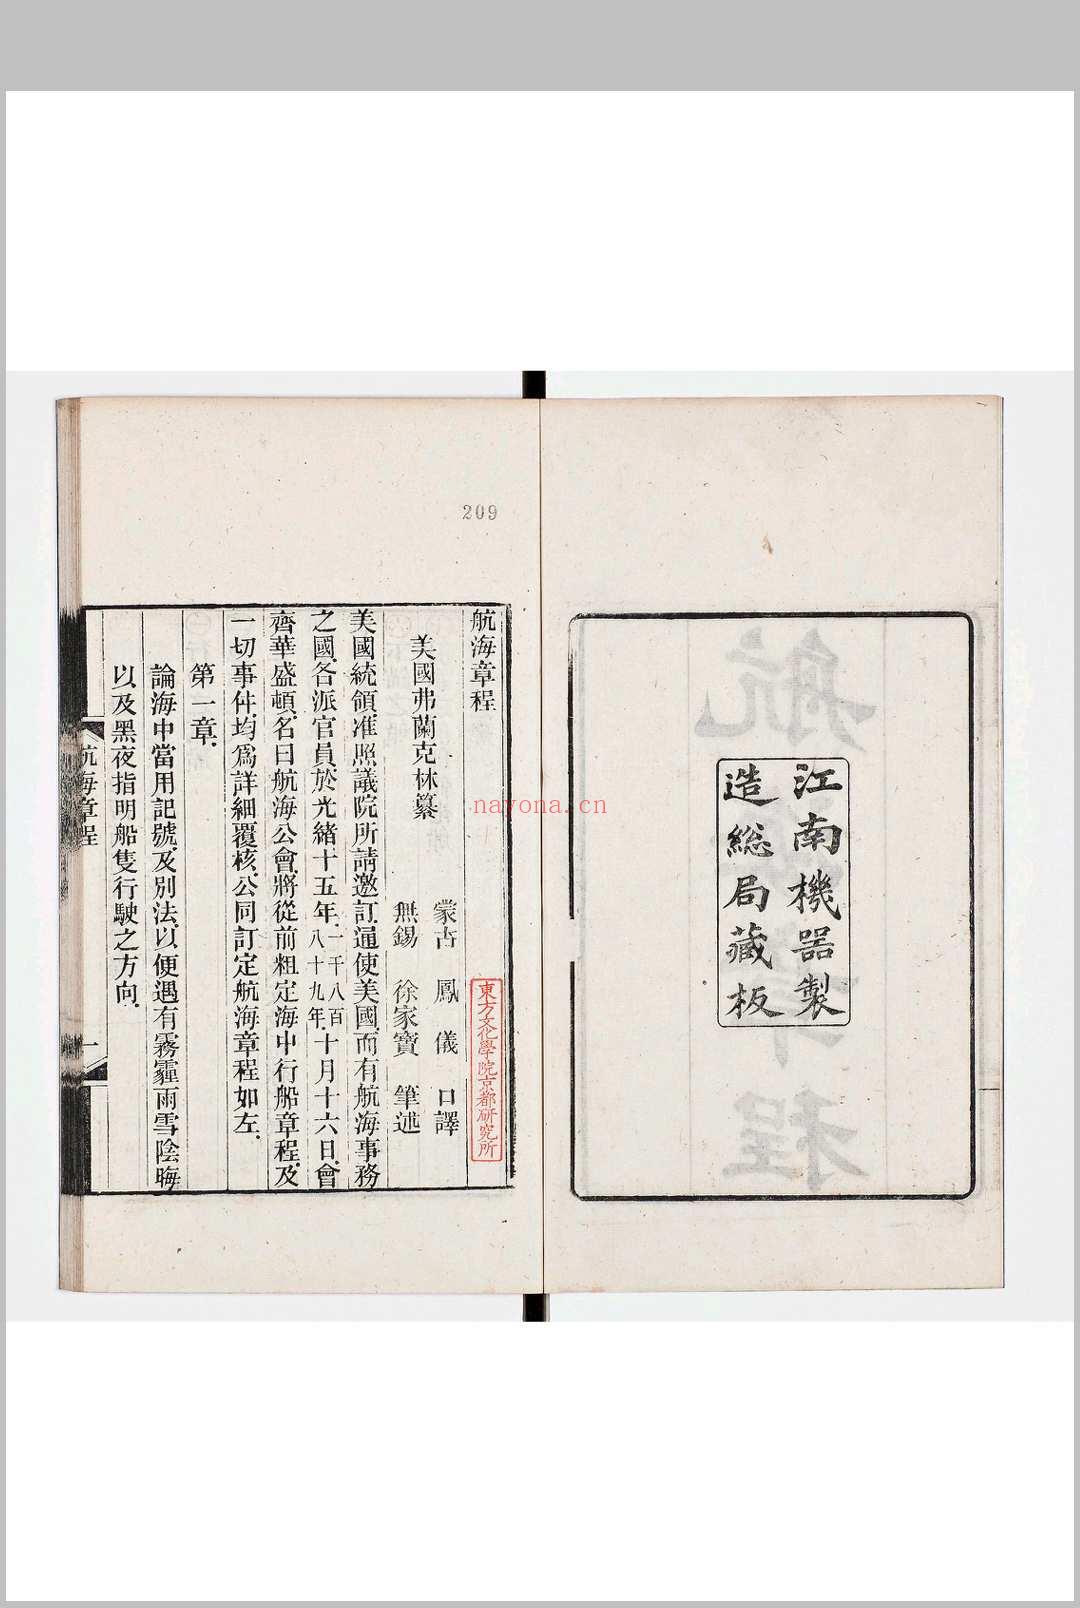 江南機器製
造総局藏板
209
航海章程
美國弗蘭克林纂
蒙古 鳳 儀 口譯
無錫 徐家寶 筆述
東方文化學院京都研究所
美國統領准照議院所請邀訂通使美國而有航海事務
之國各派官員於光緒十五年一千八百八十九年十月十六日會
齊華盛頓名曰航海公會將從前粗定海中行船章程及
一切事件均爲詳細覆核公同訂定航海章程如左
第一章
論海中當用記號及別法以便遇有霧霾雨雪陰晦
以及黑夜指明船隻行駛之方向
航海章程
一
nayona.cn